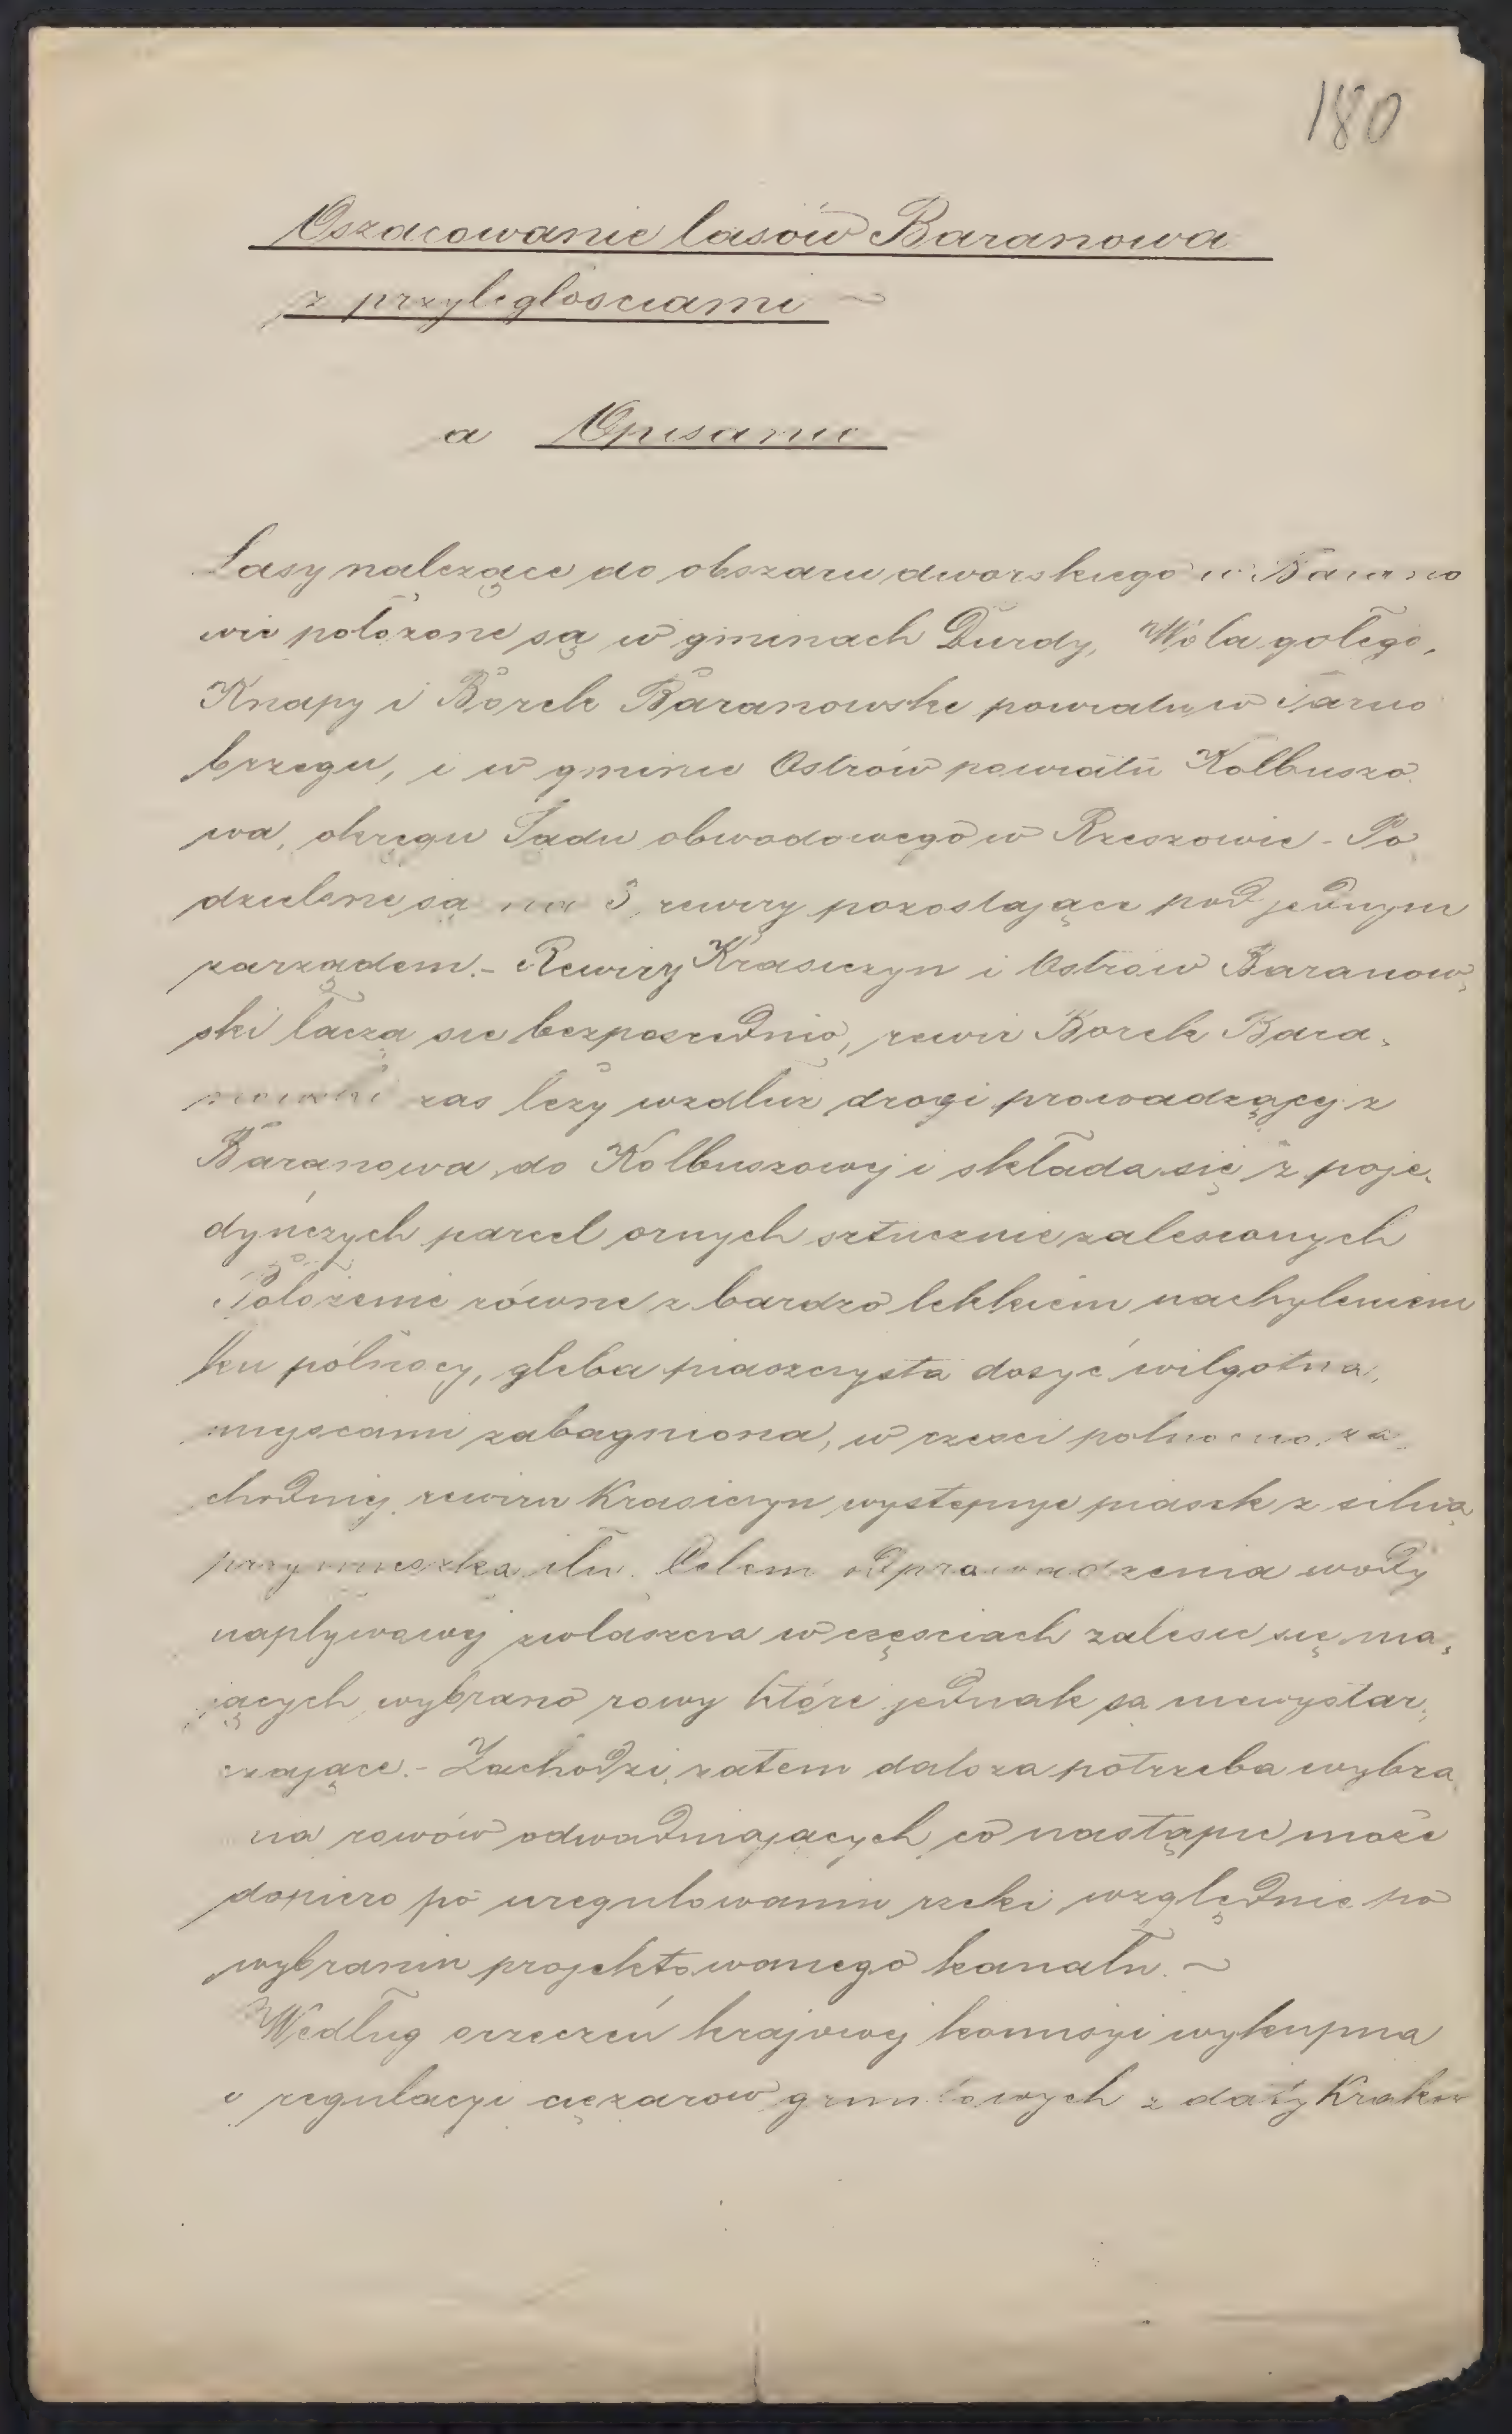 180
Oszacowanie lasów Baranowa
z przyległościami
a Opisanie
Lasy należące do obszaru dworskiego w Barano
wie położone są w gminach Durdy, Wola gołego,
Knapy i Borek Baranowski powiatu w Tarno
brzegu, i w gminie Ostrów powiatu Kolbuszo
wa, okręgu Sądu obwodowego w Rzeszowie - Po
dzielone są na 3 rewiry pozostające pod jednym
zarządem. - Rewiry Krasiczyn i Ostrow Baranow
ski łączą się bezpośrednio, rewir Borek Bara
nowski zaś leży wzdłuż drogi prowadzącej z
Baranowa do Kolbuszowej i składa się z poje
dyńczych parcel ornych sztucznie zalesionych
Położenie równe z bardzo lekkiem nachyleniem
ku północy, gleba piaszczysta dosyć wilgotna,
miejscami zabagniona, w części północno za
chodniej rewiru Krasiczyn występuje piasek z silną
przymieszką iłu. Celem odprowadzenia wody
napływowej zwłaszcza w częściach zalesić się ma
jących wybrano rowy które jednak są niewystar
czające. - Zachodzi zatem dalsza potrzeba wybra
nia rowów odwadniających co nastąpić może
dopiero po uregulowaniu rzeki względnie po
wybraniu projektowanego kanału. ~
Według orzeczeń krajowej komisyi wykupna
i regulacyi ciężarow gruntowych z daty Krakow